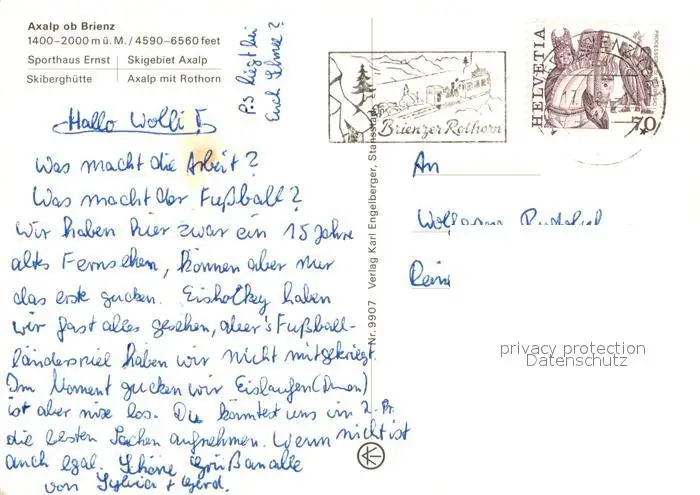 Axalp ob Brienz
1400–2000 m ü. M. / 4590–6560 feet
Sporthaus Ernst
Skigebiet Axalp
Skiberghütte
Axalp mit Rothorn
P.S liegt bei
Euch Schnee?
Hallo Wolli!
Was macht die Arbeit?
Was macht der Fußball?
Wir haben hier zwar ein 15 Jahre
altes Fernsehen, können aber nur
das erste gucken. Eishokky haben
wir fast alles gesehen, aber's Fußball-
länderspiel haben wir nicht mitgekriegt.
Im Moment gucken wir Eislaufen (Damen)
ist aber nixe los. Du könntest uns im 2. Pr.
die besten Sachen aufnehmen. Wenn nicht ist
auch egal. Schöne Grüße an alle
von Sylvia + Gerd.
Nr. 9907 Verlag Karl Engelberger, Stansstad
Brienzer Rothorn
HELVETIA
70
An
privacy protection
Datenschutz